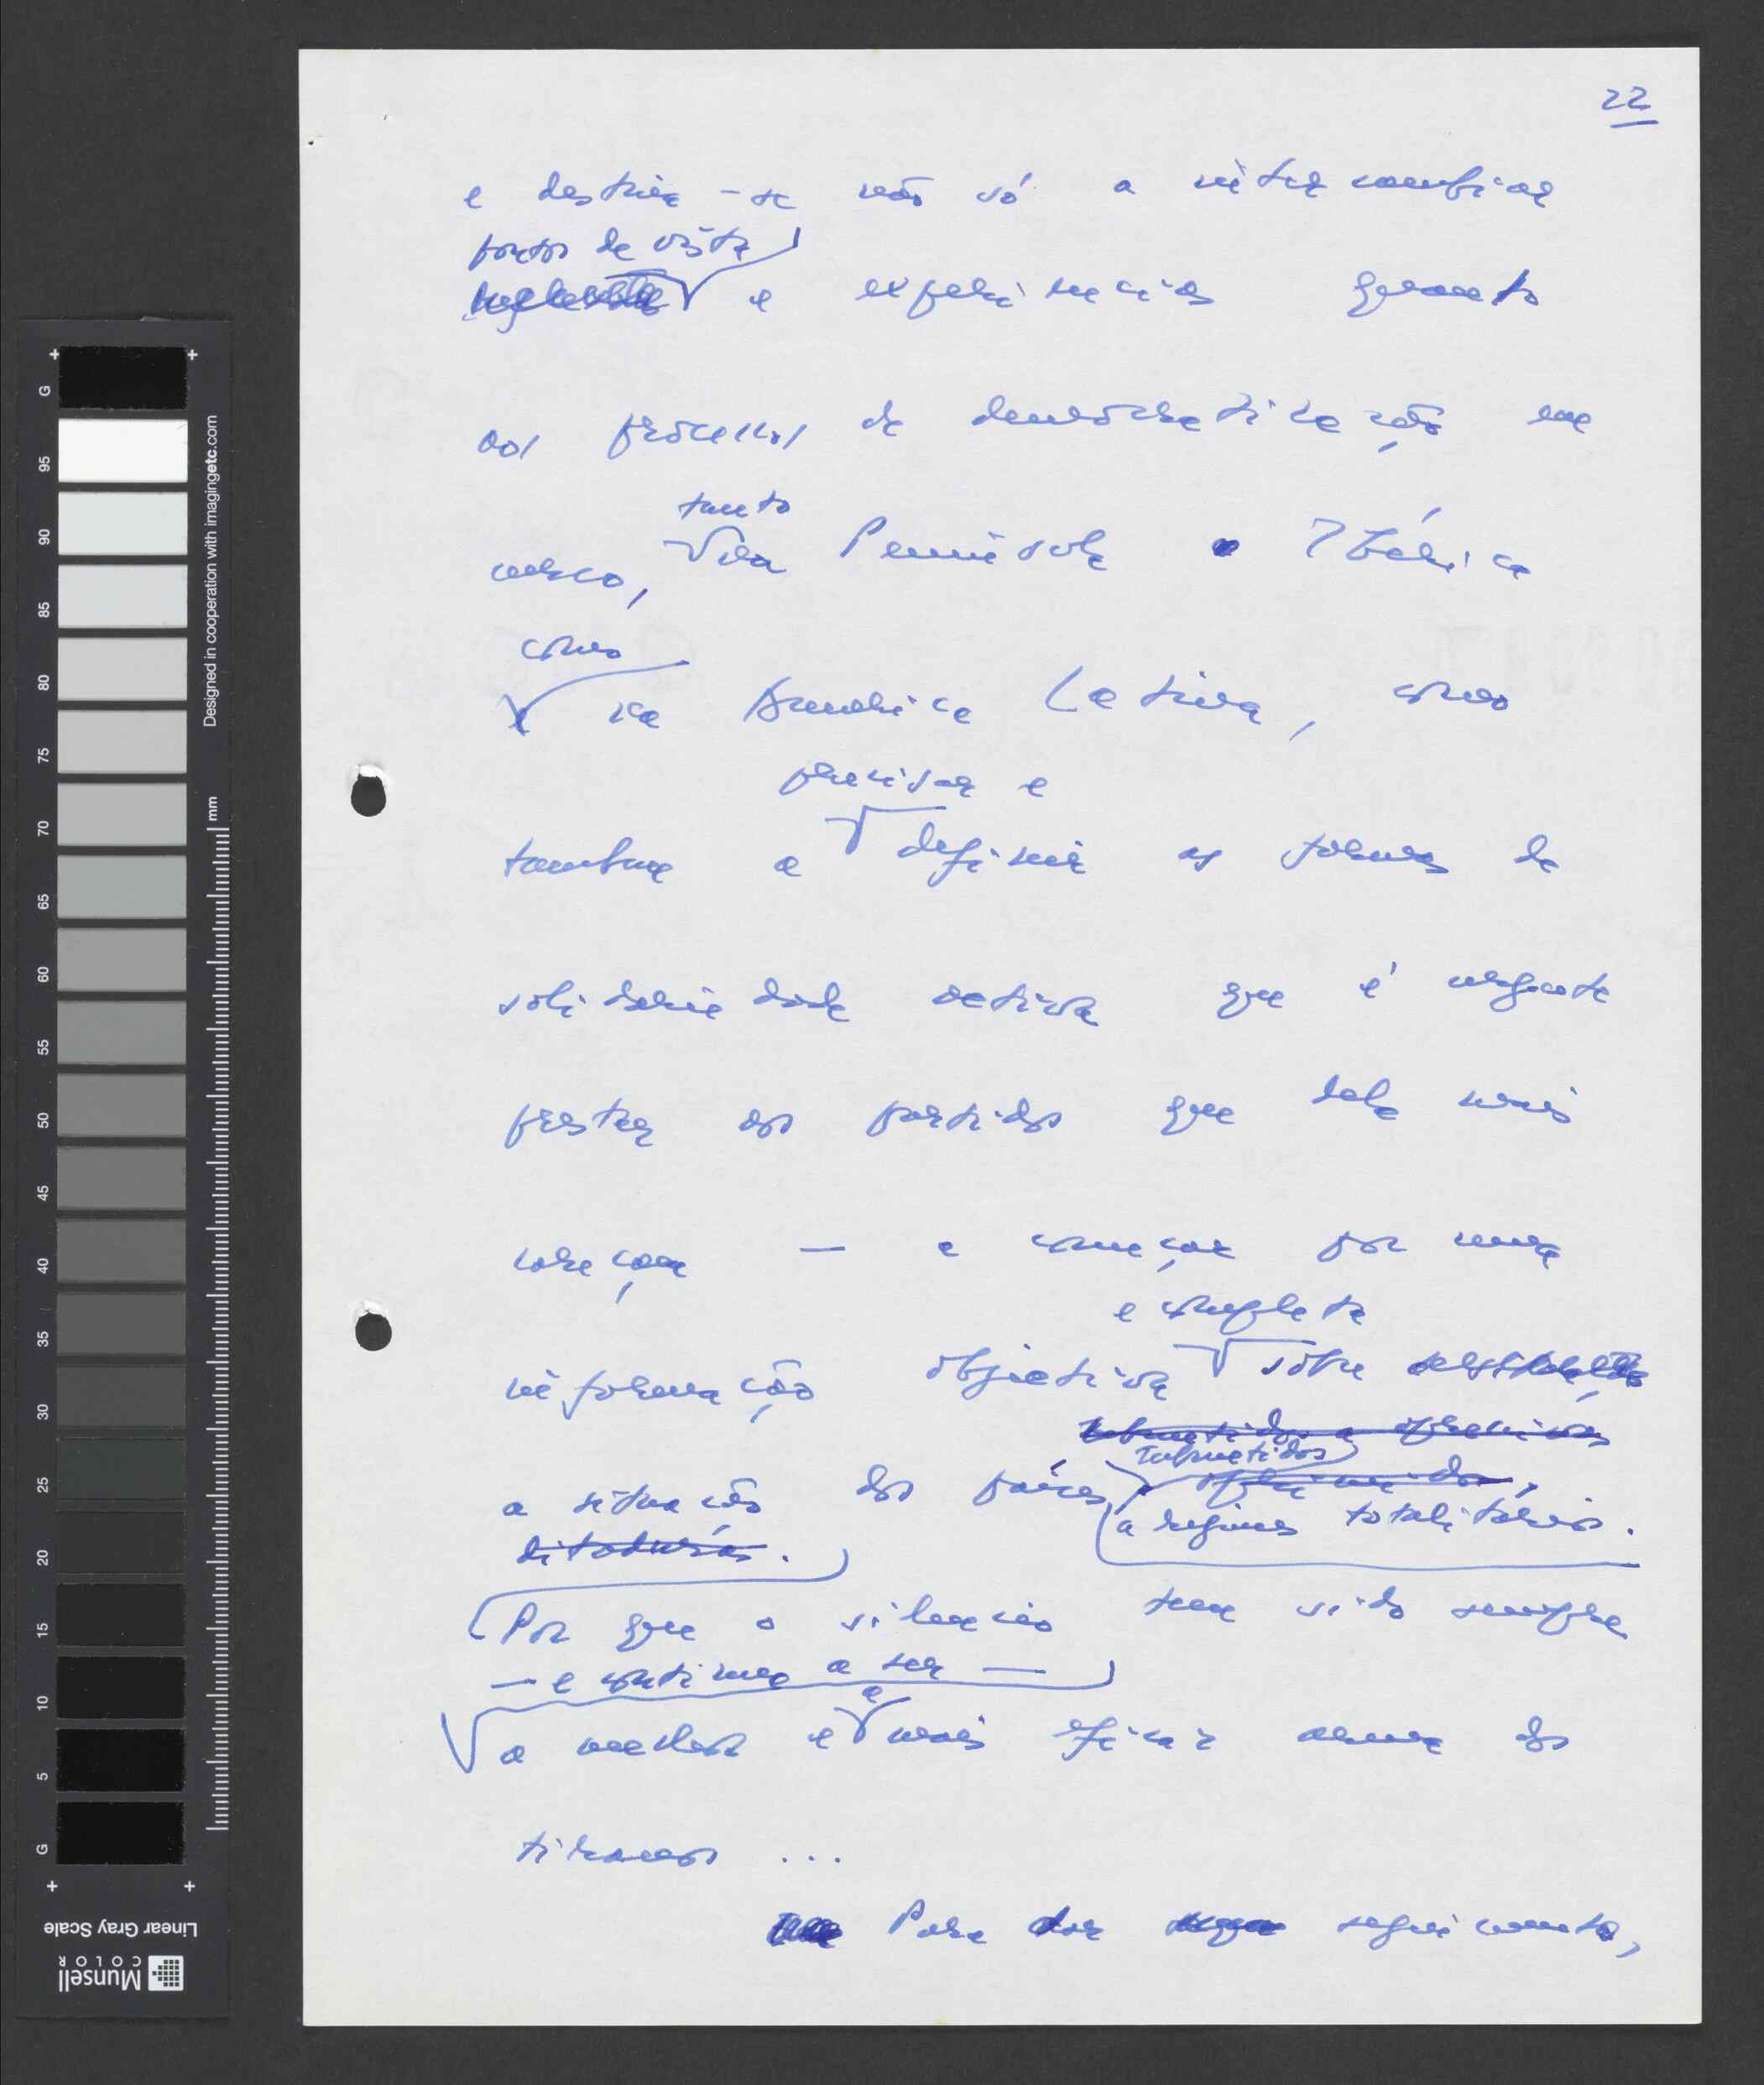 22
e destina-se não só a intercambiar
pontos de vista
e experiências quanto
aos processos de democratização em
tanto
curso, na Península Ibérica
como
na América Latina, como
precisar e
também a definir as formas de
solidariedade activa que é urgente
prestar aos partidos que dela mais
careçam — a começar por uma
e completa
informação objectiva sobre
submetidos a
submetidos
a situação dos países oprimidos,
a regimes totalitários.
ditaduras.
Por que o silêncio tem sido sempre
— e continua a ser —
a
a melhor e mais eficaz arma dos
tiranos ...
Para dar seguimento,
G 95 90 85 80 75 70 65 60 55 50 45 40 35 30 25 20 15 10 5 G
mm
Designed in cooperation with imagingetc.com
Linear Gray Scale
Munsell
COLOR